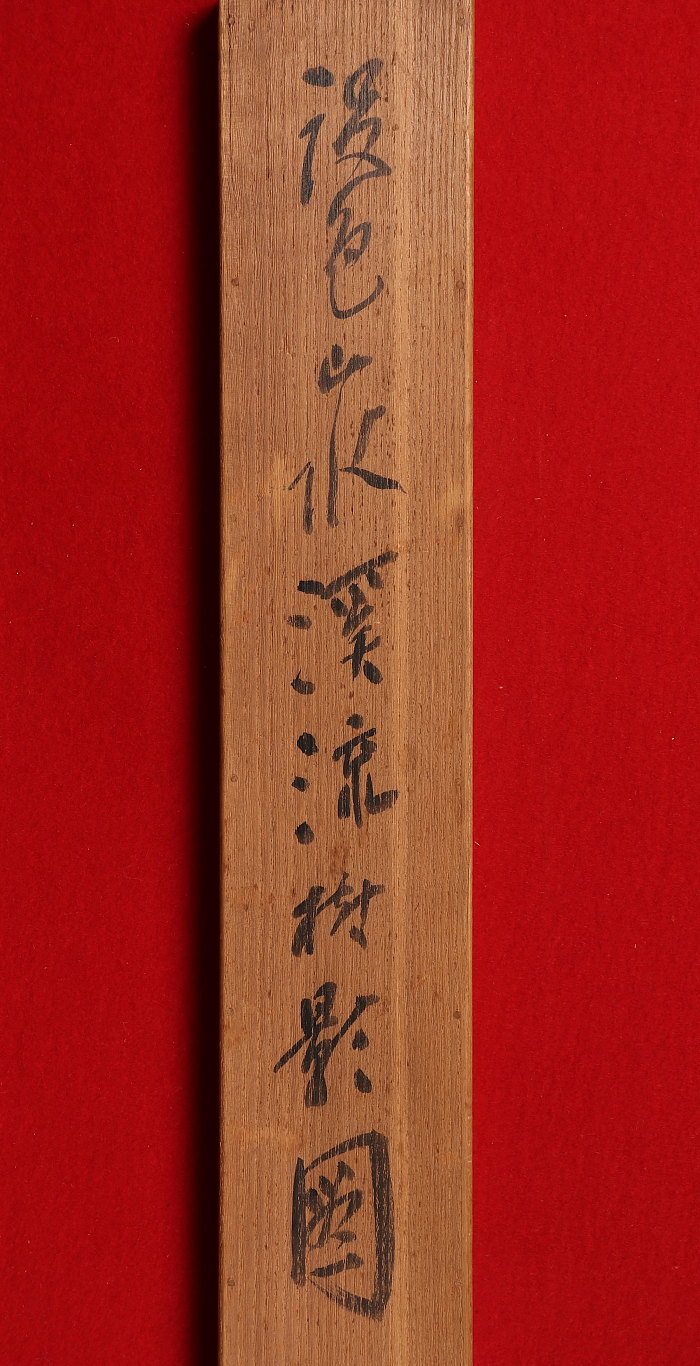 設色山水溪流樹影圖